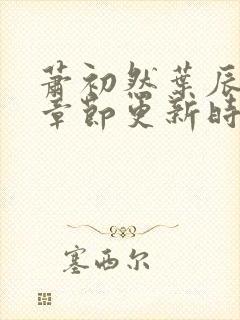 萧初然葉辰
章節更新時
塞西尔